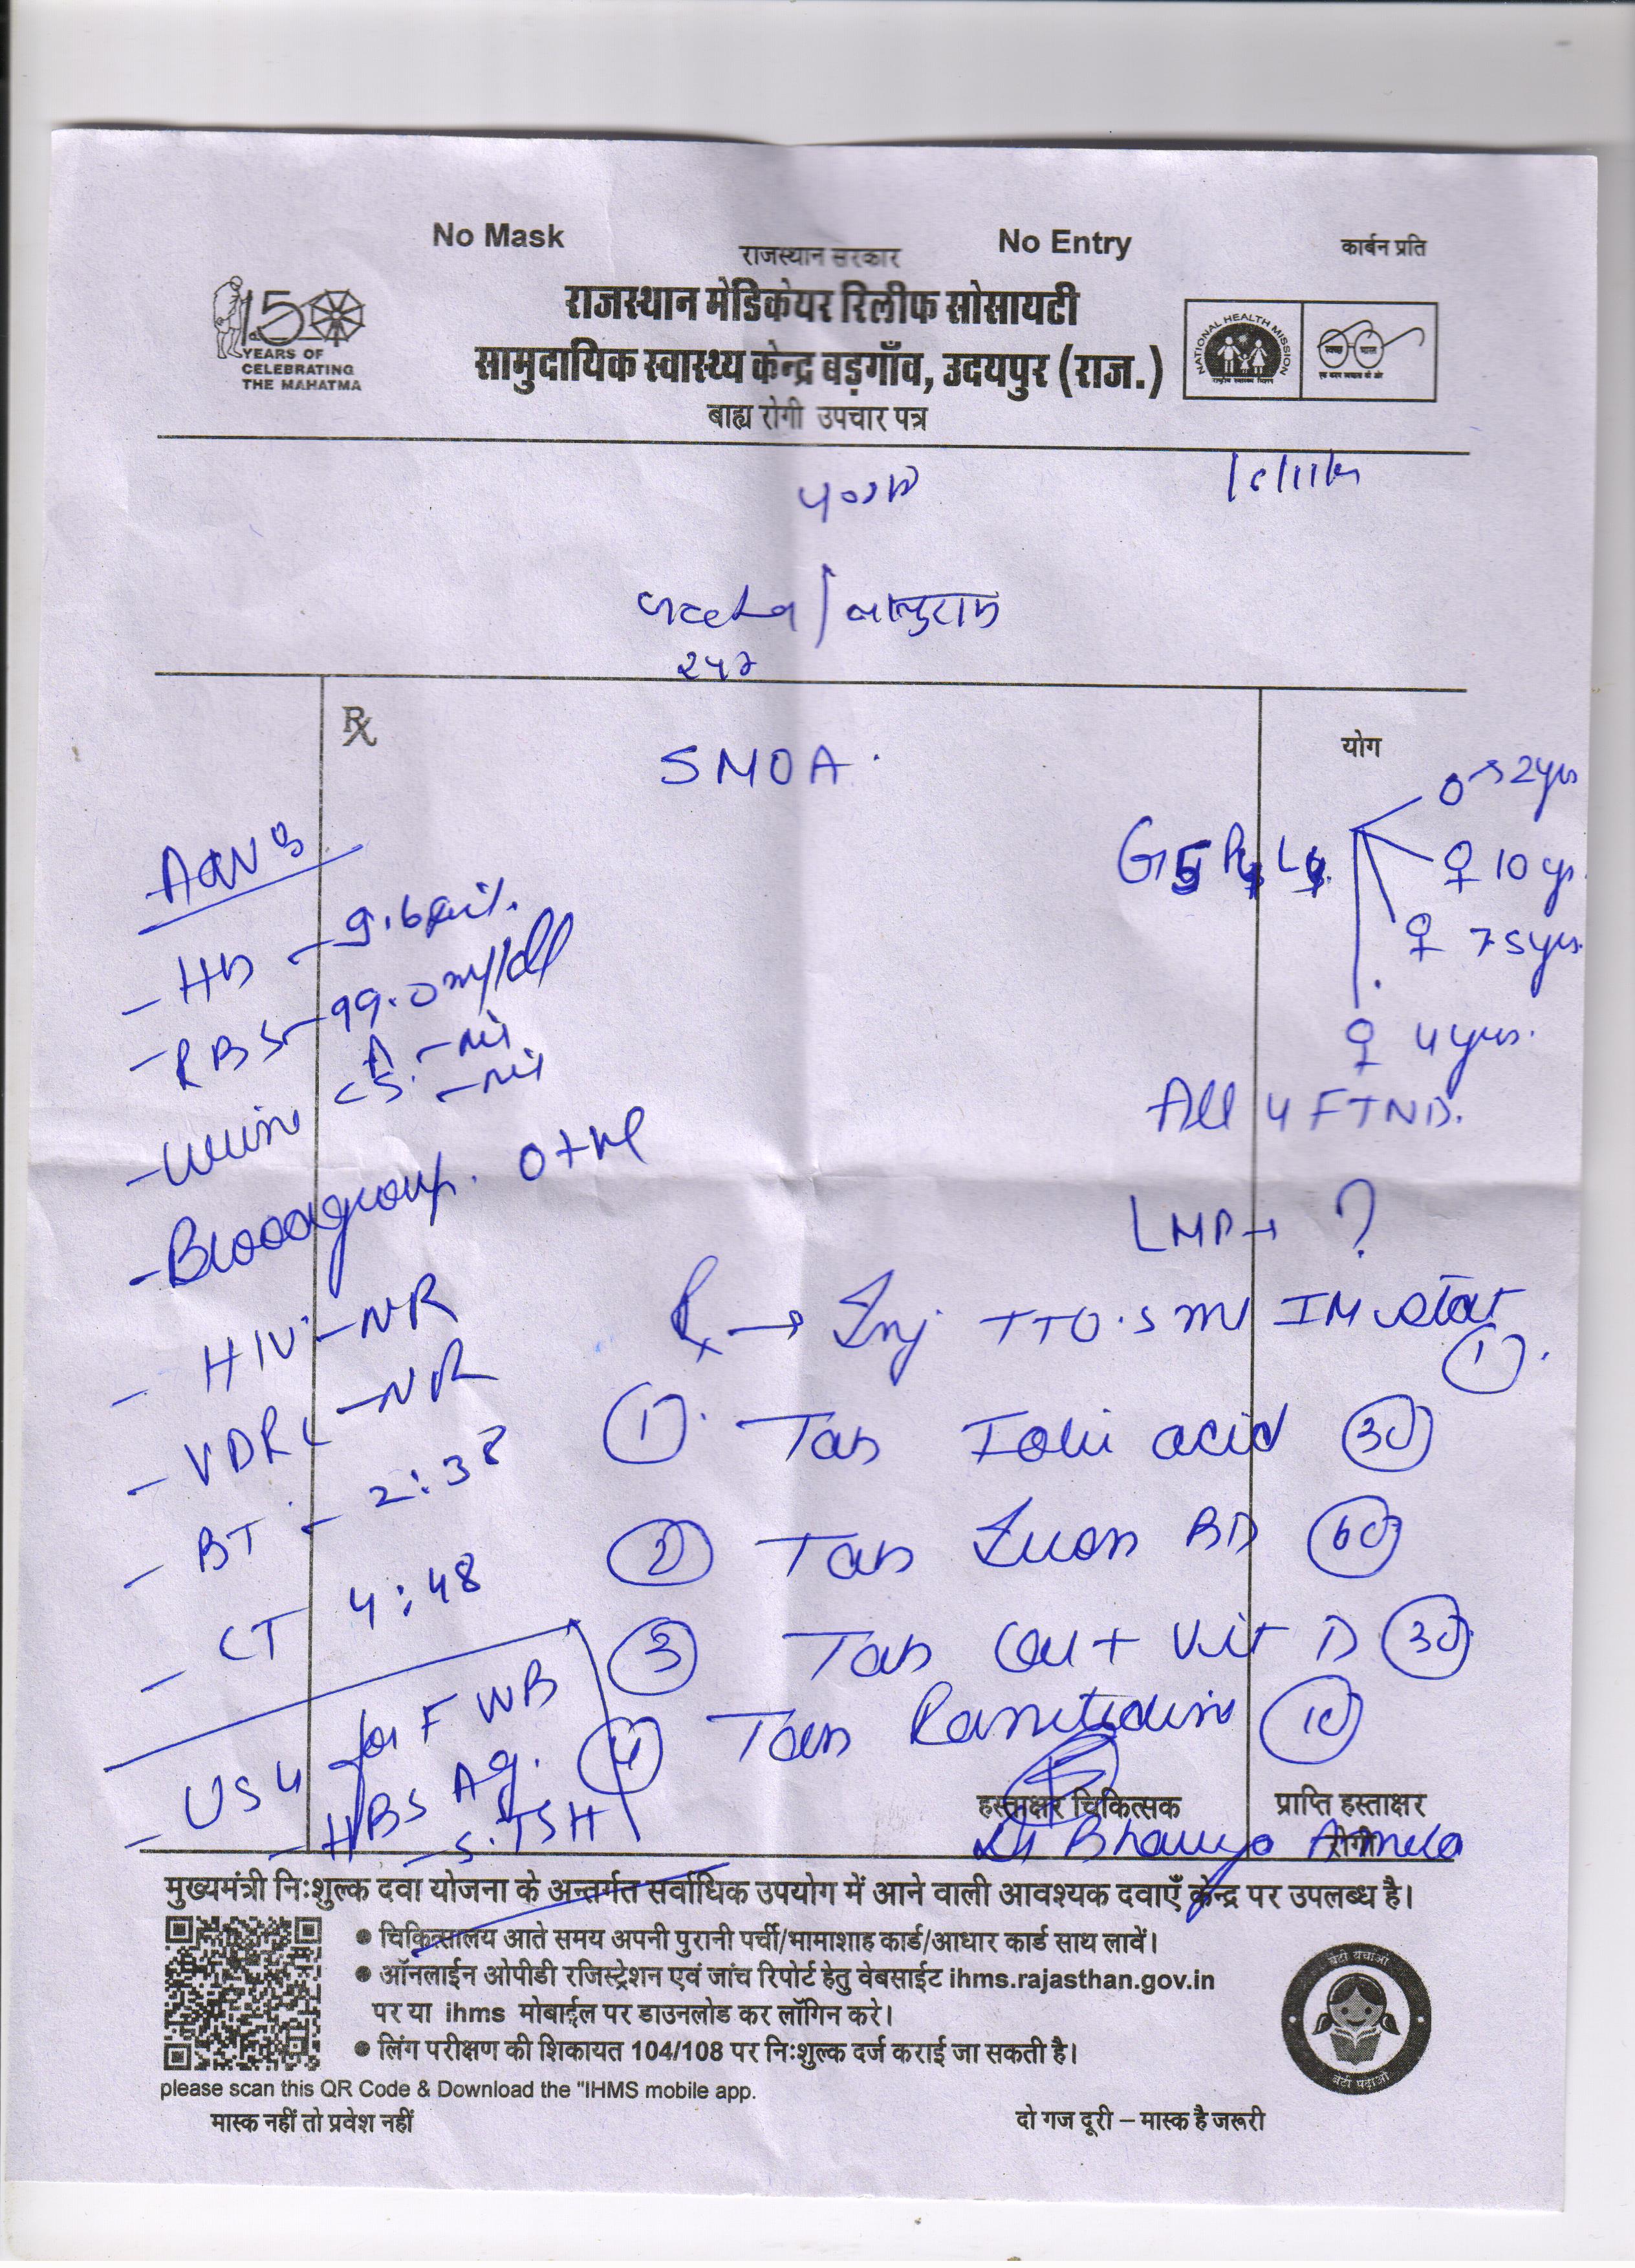 No Mask
No Entry
कार्बन प्रति
राजस्थान सरकार
राजस्थान मेडिकेयर रिलीफ सोसायटी
सामुदायिक स्वास्थ्य केन्द्र बड़गाँव, उदयपुर (राज.)
बाह्य रोगी उपचार पत्र
150
YEARS OF
CELEBRATING
THE MAHATMA
NATIONAL HEALTH MISSION
SMOA.
योग
G5 P4 L4
2yrs
♀ 10 yrs
♀ 7.5yrs
♀ 4 yrs.
All 4 FTND.
LMP → ?
- Hb - 9.6
- RBS - 99.0 mg/dl
- Urine A - Nil
S. - Nil
- Bloodgroup. O+ve
- HIV - NR
- VDRL - NR
- BT - 2:38
- CT 4:48
- USG for FWB
- HBSAg.
- S.TSH
Rx → Inj TT 0.5 ml IM stat
(1).
(1) Tab Folic acid (30)
(2) Tab Iron BD (60)
(3) Tab Cal + Vit D (30)
(4) Tab Ranitidine (10)
हस्ताक्षर चिकित्सक
प्राप्ति हस्ताक्षर
रोगी
मुख्यमंत्री निःशुल्क दवा योजना के अन्तर्गत सर्वाधिक उपयोग में आने वाली आवश्यक दवाएँ केन्द्र पर उपलब्ध है।
● चिकित्सालय आते समय अपनी पुरानी पर्ची/भामाशाह कार्ड/आधार कार्ड साथ लावें।
● ऑनलाईन ओपीडी रजिस्ट्रेशन एवं जांच रिपोर्ट हेतु वेबसाईट ihms.rajasthan.gov.in
पर या ihms मोबाईल पर डाउनलोड कर लॉगिन करे।
● लिंग परीक्षण की शिकायत 104/108 पर निःशुल्क दर्ज कराई जा सकती है।
बेटी बचाओ
बेटी पढ़ाओ
please scan this QR Code & Download the "IHMS mobile app.
मास्क नहीं तो प्रवेश नहीं
दो गज दूरी – मास्क है जरूरी